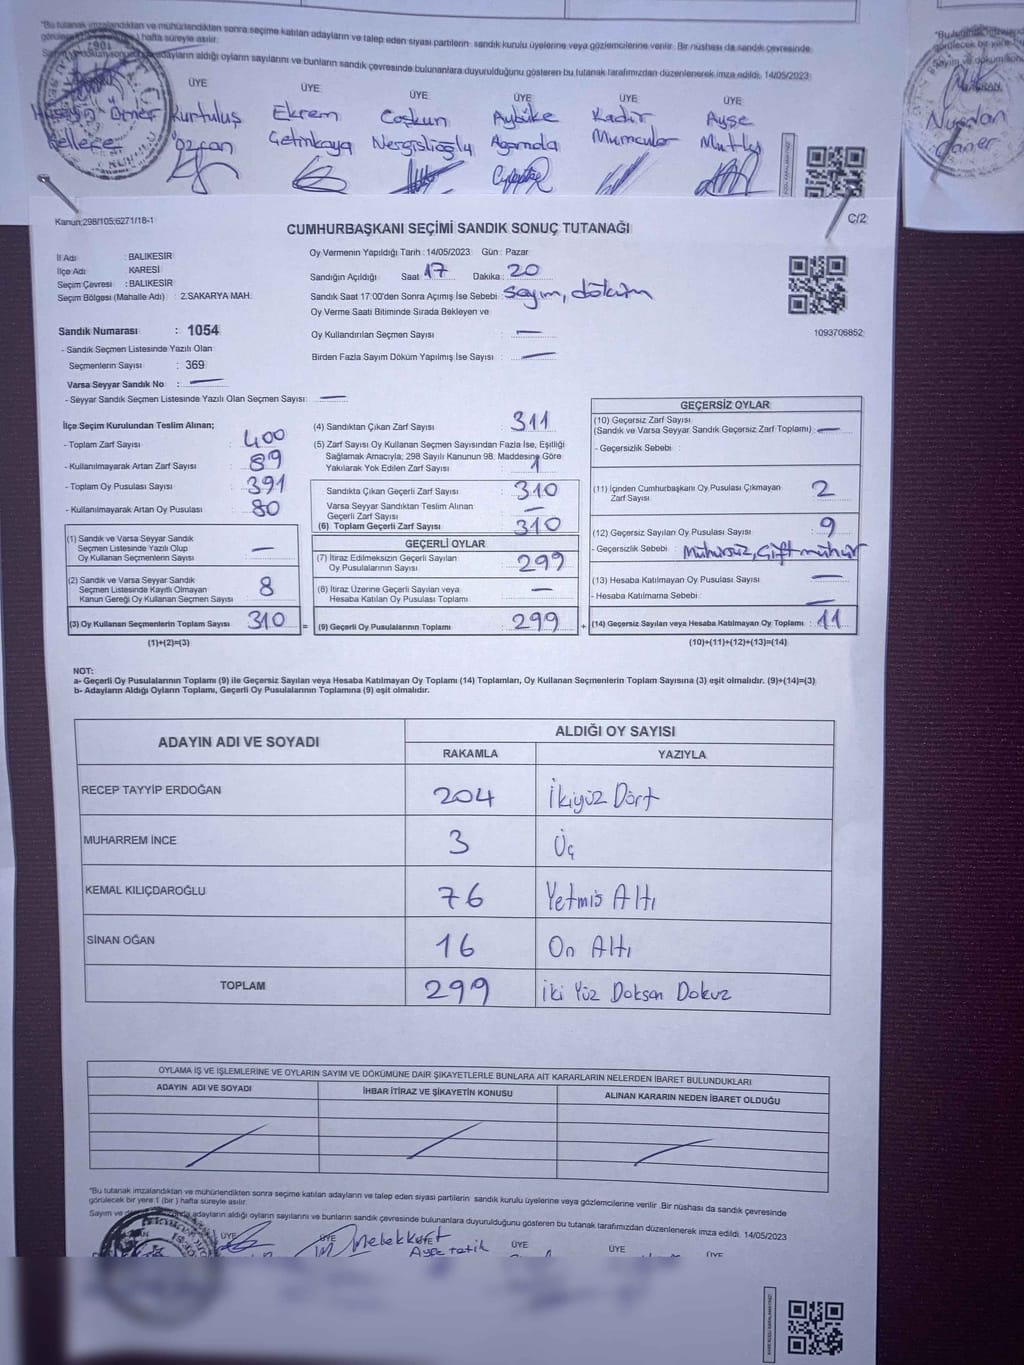 "Bu tutanak imzalandıktan ve mühürlendikten sonra seçime katılan adayların ve talep eden siyasi partilerin sandık kurulu üyelerine veya gözlemcilerine verilir. Bir nüshası da sandık çevresinde
görülecek hafta süreyle asılır.
adayların aldığı oyların sayılarını ve bunların sandık çevresinde bulunanlara duyurulduğunu gösteren bu tutanak tarafımızdan düzenlenerek imza edildi. 14/05/2023
ÜYE ÜYE ÜYE ÜYE ÜYE ÜYE
Ömer Kurtuluş Ekrem Coşkun Aybüke Kadir Ayşe
Özcan Çetinkaya Mumcular Mutlu
Kanun:298/105;6271/18-1
C/2
CUMHURBAŞKANI SEÇİMİ SANDIK SONUÇ TUTANAĞI
İl Adı : BALIKESİR
İlçe Adı KARESİ
Seçim Çevresi : BALIKESİR
Seçim Bölgesi (Mahalle Adı) : 2.SAKARYA MAH.
Oy Vermenin Yapıldığı Tarih : 14/05/2023 Gün : Pazar
Sandığın Açıldığı Saat 17 Dakika : 20
Sandık Saat 17:00'den Sonra Açımış İse Sebebi : Sayım, döküm
Oy Verme Saati Bitiminde Sırada Bekleyen ve
Oy Kullandırılan Seçmen Sayısı : —
Birden Fazla Sayım Döküm Yapılmış İse Sayısı : —
1093706852
Sandık Numarası : 1054
- Sandık Seçmen Listesinde Yazılı Olan
Seçmenlerin Sayısı : 369
Varsa Seyyar Sandık No : —
- Seyyar Sandık Seçmen Listesinde Yazılı Olan Seçmen Sayısı: —
İlçe Seçim Kurulundan Teslim Alınan;
- Toplam Zarf Sayısı : 400
- Kullanılmayarak Artan Zarf Sayısı : 89
- Toplam Oy Pusulası Sayısı : 391
- Kullanılmayarak Artan Oy Pusulası : 80
(1) Sandık ve Varsa Seyyar Sandık
Seçmen Listesinde Yazılı Olup
Oy Kullanan Seçmenlerin Sayısı : —
(2) Sandık ve Varsa Seyyar Sandık
Seçmen Listesinde Kayıtlı Olmayan
Kanun Gereği Oy Kullanan Seçmen Sayısı : 8
(3) Oy Kullanan Seçmenlerin Toplam Sayısı : 310 =
(1)+(2)=(3)
(4) Sandıktan Çıkan Zarf Sayısı : 311
(5) Zarf Sayısı Oy Kullanan Seçmen Sayısından Fazla İse, Eşitliği
Sağlamak Amacıyla; 298 Sayılı Kanunun 98. Maddesine Göre
Yakılarak Yok Edilen Zarf Sayısı : 1
Sandıkta Çıkan Geçerli Zarf Sayısı : 310
Varsa Seyyar Sandıktan Teslim Alınan
Geçerli Zarf Sayısı : —
(6) Toplam Geçerli Zarf Sayısı : 310
GEÇERLİ OYLAR
(7) İtiraz Edilmeksizin Geçerli Sayılan
Oy Pusulalarının Sayısı : 299
(8) İtiraz Üzerine Geçerli Sayılan veya
Hesaba Katılan Oy Pusulası Toplamı : —
(9) Geçerli Oy Pusulalarının Toplamı : 299 +
GEÇERSİZ OYLAR
(10) Geçersiz Zarf Sayısı
(Sandık ve Varsa Seyyar Sandık Geçersiz Zarf Toplamı) : —
- Geçersizlik Sebebi :
(11) İçinden Cumhurbaşkanı Oy Pusulası Çıkmayan
Zarf Sayısı : 2
(12) Geçersiz Sayılan Oy Pusulası Sayısı : 9
- Geçersizlik Sebebi : Mühürsüz, Çift mühür
(13) Hesaba Katılmayan Oy Pusulası Sayısı : —
- Hesaba Katılmama Sebebi : —
(14) Geçersiz Sayılan veya Hesaba Katılmayan Oy Toplamı : 11
(10)+(11)+(12)+(13)=(14)
NOT:
a- Geçerli Oy Pusulalarının Toplamı (9) ile Geçersiz Sayılan veya Hesaba Katılmayan Oy Toplamı (14) Toplamları, Oy Kullanan Seçmenlerin Toplam Sayısına (3) eşit olmalıdır. (9)+(14)=(3)
b- Adayların Aldığı Oyların Toplamı, Geçerli Oy Pusulalarının Toplamına (9) eşit olmalıdır.
ADAYIN ADI VE SOYADI ALDIĞI OY SAYISI
RAKAMLA YAZIYLA
RECEP TAYYİP ERDOĞAN 204 İkiyüz Dört
MUHARREM İNCE 3 Üç
KEMAL KILIÇDAROĞLU 76 Yetmiş Altı
SİNAN OĞAN 16 On Altı
TOPLAM 299 İki Yüz Doksan Dokuz
OYLAMA İŞ VE İŞLEMLERİNE VE OYLARIN SAYIM VE DÖKÜMÜNE DAİR ŞİKAYETLERLE BUNLARA AİT KARARLARIN NELERDEN İBARET BULUNDUKLARI
ADAYIN ADI VE SOYADI İHBAR İTİRAZ VE ŞİKAYETİN KONUSU ALINAN KARARIN NEDEN İBARET OLDUĞU
"Bu tutanak imzalandıktan ve mühürlendikten sonra seçime katılan adayların ve talep eden siyasi partilerin sandık kurulu üyelerine veya gözlemcilerine verilir. Bir nüshası da sandık çevresinde
görülecek bir yere 1 (bir ) hafta süreyle asılır.
Sayım ve adayların aldığı oyların sayılarını ve bunların sandık çevresinde bulunanlara duyurulduğunu gösteren bu tutanak tarafımızdan düzenlenerek imza edildi. 14/05/2023
ÜYE ÜYE ÜYE ÜYE ÜYE ÜYE